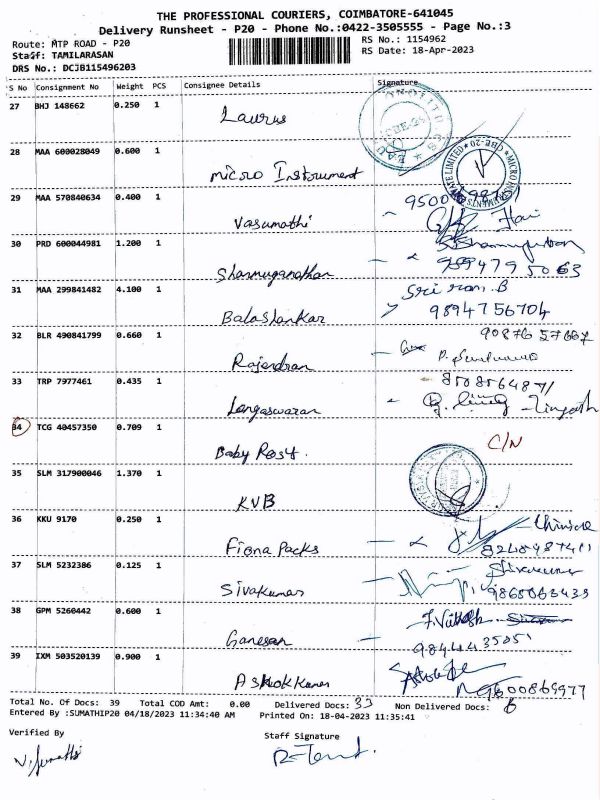 THE PROFESSIONAL COURIERS, COIMBATORE-641045
Delivery Runsheet - P20 - Phone No.:0422-3505555 - Page No.:3
Route: MTP ROAD - P20 RS No.: 1154962
Staff: TAMILARASAN RS Date: 18-Apr-2023
DRS No.: DCJB115496203
S No Consignment No Weight PCS Consignee Details Signature
27 BHJ 148662 0.250 1 Laurus
28 MAA 600028049 0.600 1 Micro Instrument
29 MAA 570840634 0.400 1 Vasumathi
Hari
30 PRD 600044981 1.200 1 Shanmuganathan
31 MAA 299841482 4.100 1 Balashankar Sri ram. B
9894756704
32 BLR 490841799 0.660 1 Rajendran
33 TRP 7977461 0.435 1
34 TCG 40457350 0.709 1 Baby Rosy. C/N
35 SLM 317900046 1.370 1 KVB
36 KKU 9170 0.250 1 Fiona Packs
37 SLM 5232386 0.125 1 Sivakumar
38 GPM 5260442 0.600 1 Ganesan
39 IXM 503520139 0.900 1 Ashok Kumar
Total No. Of Docs: 39 Total COD Amt: 0.00 Delivered Docs: 33 Non Delivered Docs: 6
Entered By :SUMATHIP20 04/18/2023 11:34:40 AM Printed On: 18-04-2023 11:35:41
Verified By Staff Signature